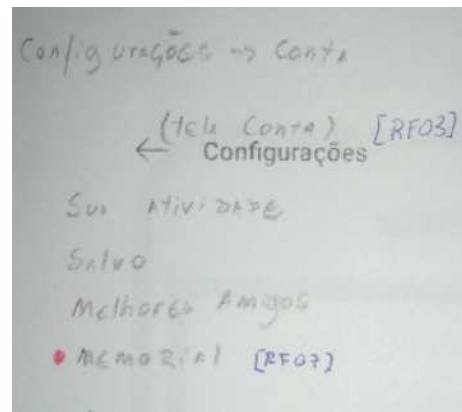 Configurações -> Conta
(tela Conta) [RF03]
← Configurações
Sua Atividade
Salvo
Melhores Amigos
• Memorial [RF07]